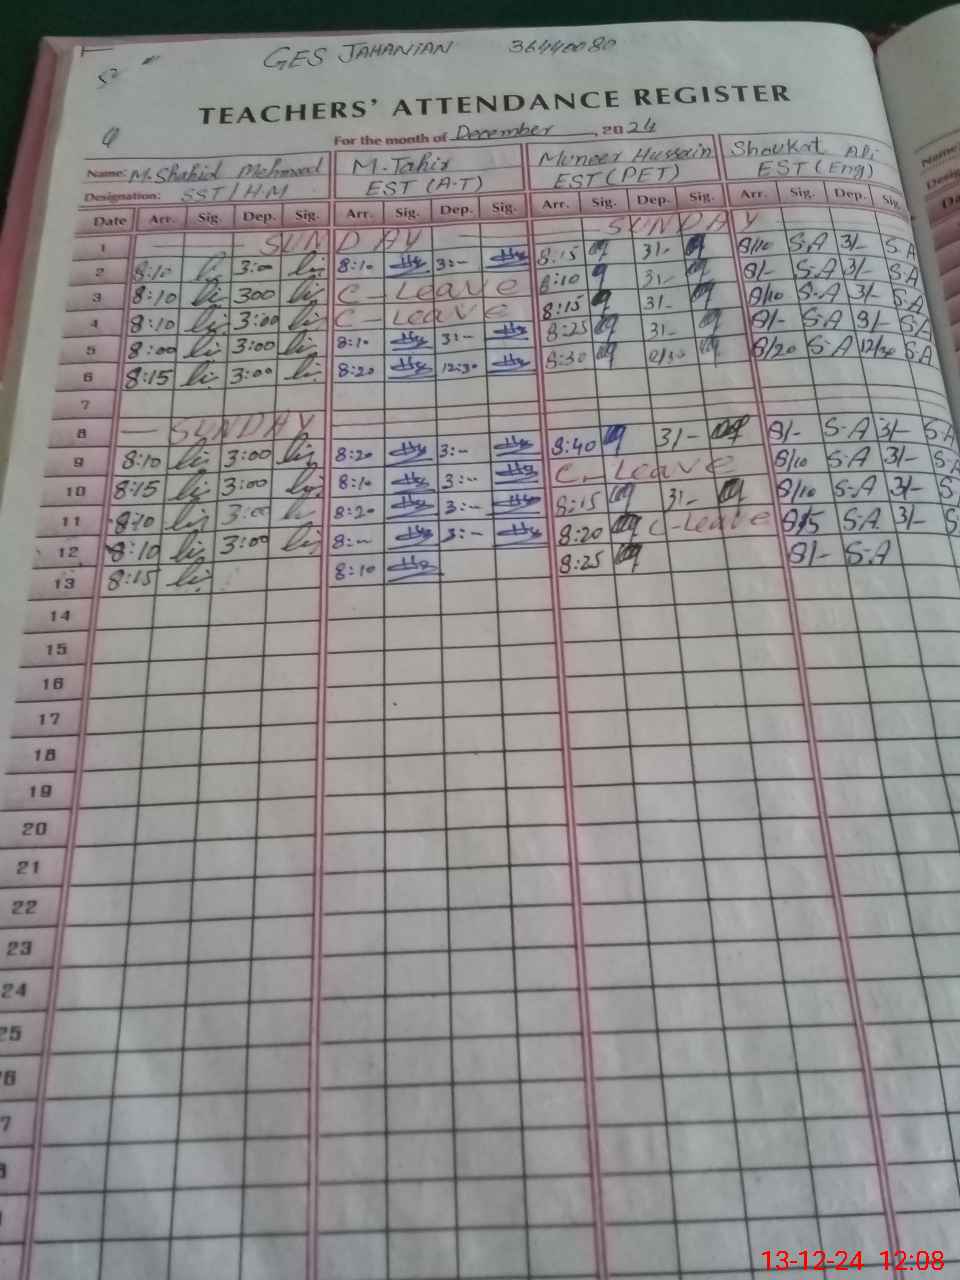 GES JAHANIAN 36440080
TEACHERS' ATTENDANCE REGISTER
For the month of December, 2024
Name: M.Shahid Mehmood M.Tahir Muneer Hussain Shoukat Ali
Designation: SST/HM EST (A-T) EST (PET) EST (Eng)
Date Arr. Sig. Dep. Sig. Arr. Sig. Dep. Sig. Arr. Sig. Dep. Sig. Arr. Sig. Dep. Sig.
1 SUNDAY SUNDAY
2 8:10 3:00 8:10 3:- 8:15 3/- 8/10 S.A 3/- S.A
3 8:10 300 C-Leave 8:10 3/- 8/- S.A 3/- S.A
4 8:10 3:00 C-Leave 8:15 3/- 8/10 S.A 3/- S.A
5 8:00 3:00 8:10 3:- 8:25 3/- 8/- S.A 3/- S.A
6 8:15 3:00 8:20 12:30 8:30 8/20 S.A 12/30 S.A
7
8 SUNDAY
9 8:10 3:00 8:20 3:- 8:40 3/- 8/- S.A 3/- S.A
10 8:15 3:00 8:10 3:- C-Leave 8/10 S.A 3/- S.A
11 8:10 3:00 8:20 3:- 8:15 3/- 8/10 S.A 3/- S
12 8:10 3:00 8:- 3:- 8:20 C-Leave 8/15 S.A 3/- S
13 8:15 8:10 8:25 8/- S.A
14
15
16
17
18
19
20
21
22
23
24
25
13-12-24 12:08